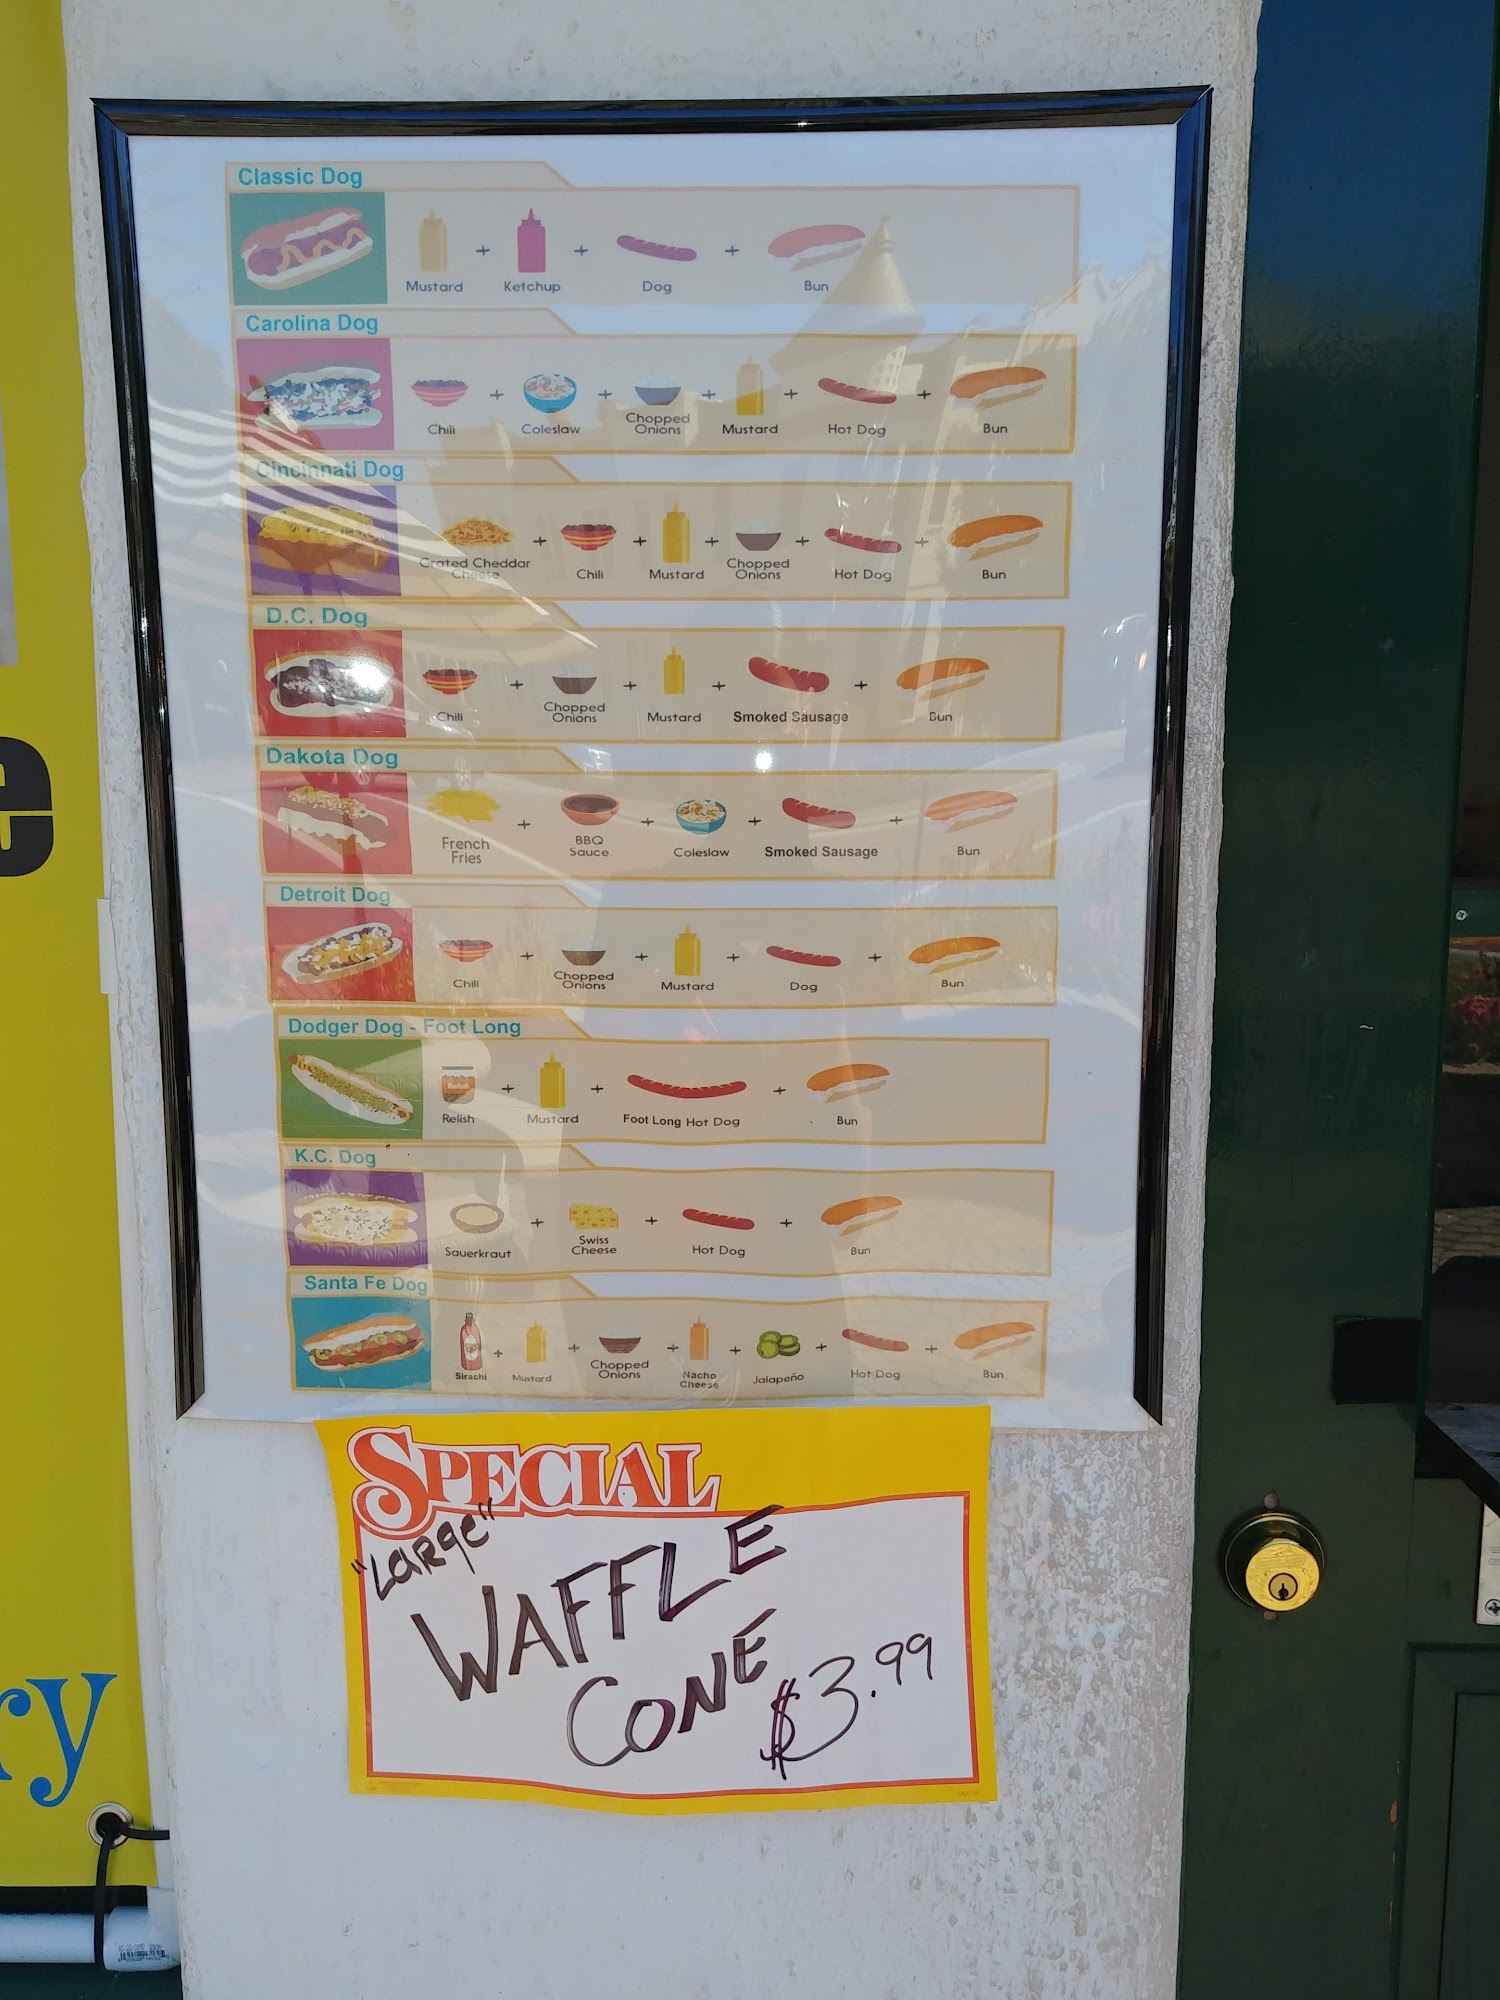 Classic Dog
Mustard + Ketchup + Dog + Bun
Carolina Dog
Chili + Coleslaw + Chopped Onions + Mustard + Hot Dog + Bun
Cincinnati Dog
Grated Cheddar Cheese + Chili + Mustard + Chopped Onions + Hot Dog + Bun
D.C. Dog
Chili + Chopped Onions + Mustard + Smoked Sausage + Bun
Dakota Dog
French Fries + BBQ Sauce + Coleslaw + Smoked Sausage + Bun
Detroit Dog
Chili + Chopped Onions + Mustard + Dog + Bun
Dodger Dog - Foot Long
Relish
Relish + Mustard + Foot Long Hot Dog + Bun
K.C. Dog
Sauerkraut + Swiss Cheese + Hot Dog + Bun
Santa Fe Dog
Sirachi + Mustard + Chopped Onions + Nacho Cheese + Jalapeño + Hot Dog + Bun
SPECIAL
"Large"
WAFFLE
CONE
$3.99
e
ry